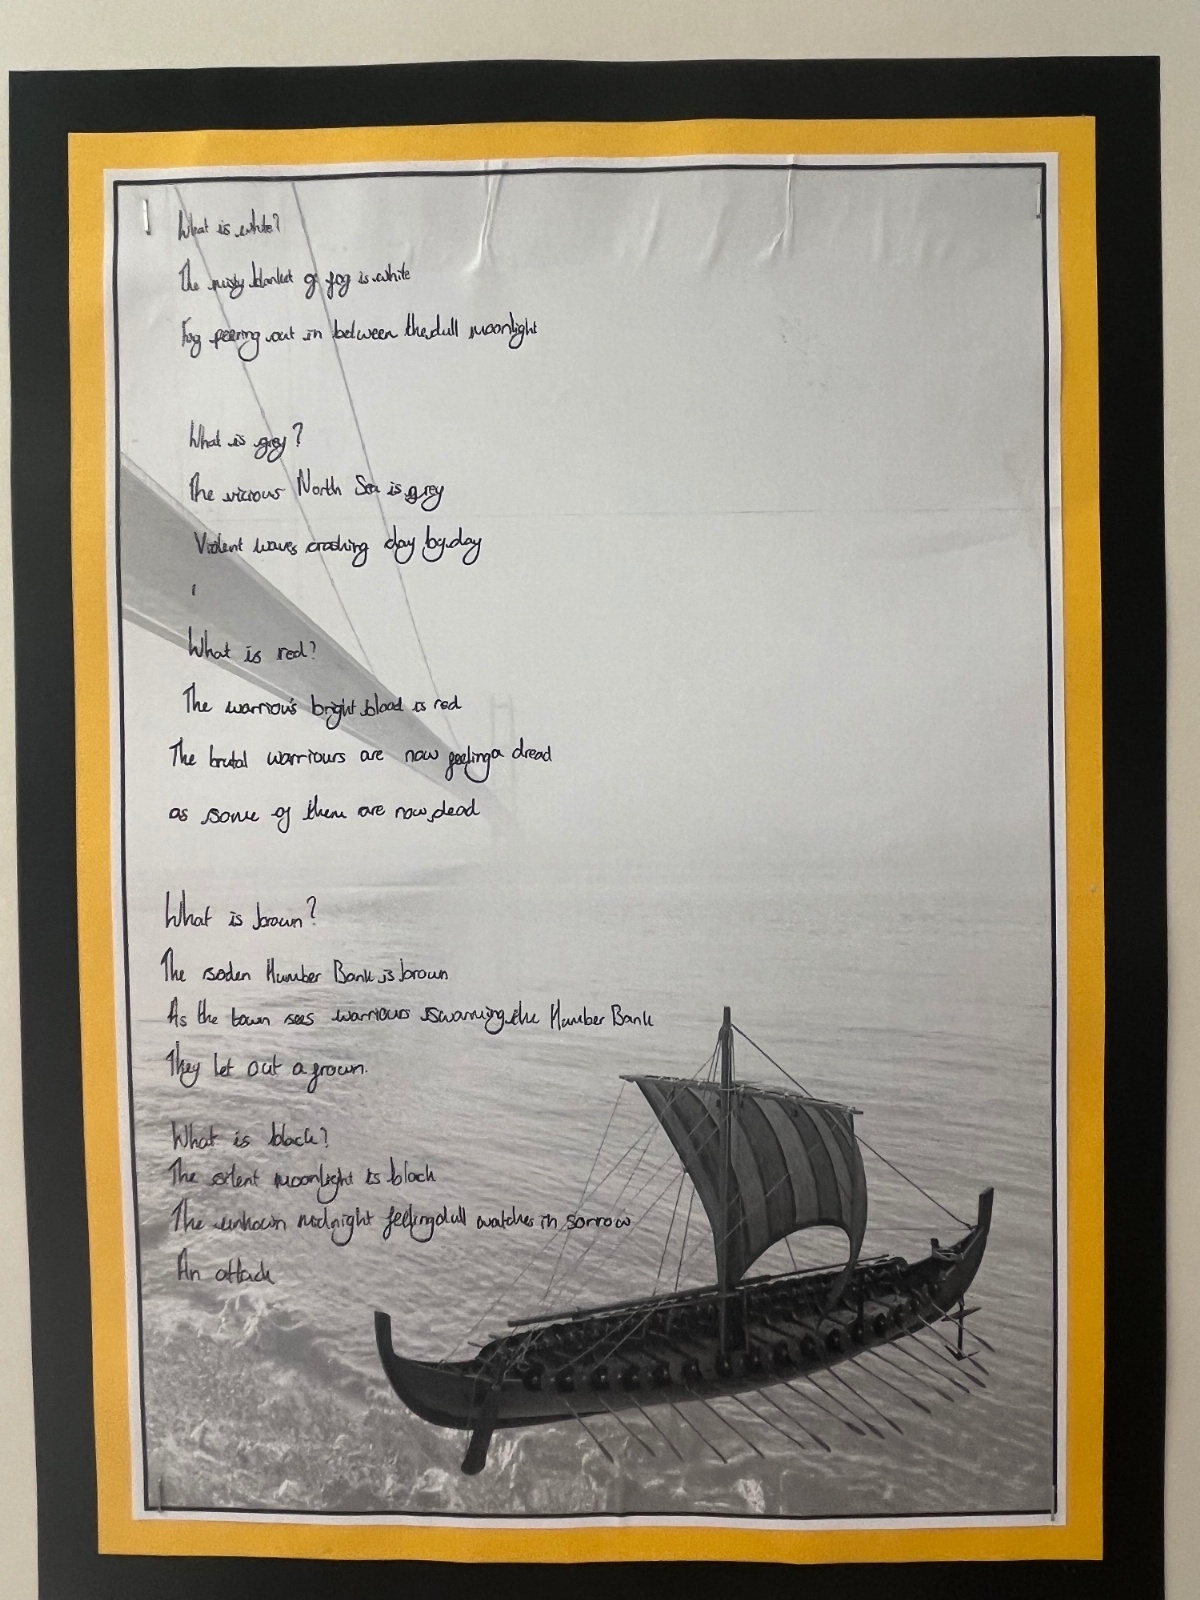 What is white?
The misty blanket of fog is white
Fog peering out in between the dull moonlight
What is grey?
The vicious North Sea is grey
Violent waves crashing day by day
What is red?
The warrious bright blood is red
The brutal warriours are now feeling a dread
as some of them are now dead
What is brown?
The soden Humber Bank is brown
As the town sees warriours swarming the Humber Bank
They let out a grown.
What is black?
The silent moonlight is black
The unkown midnight feeling dull watches in sorrow
An attack